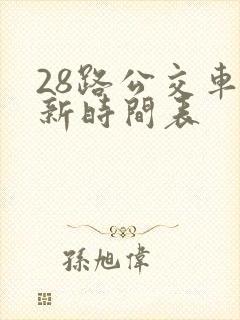 28路公交車
新時間表
孫旭偉